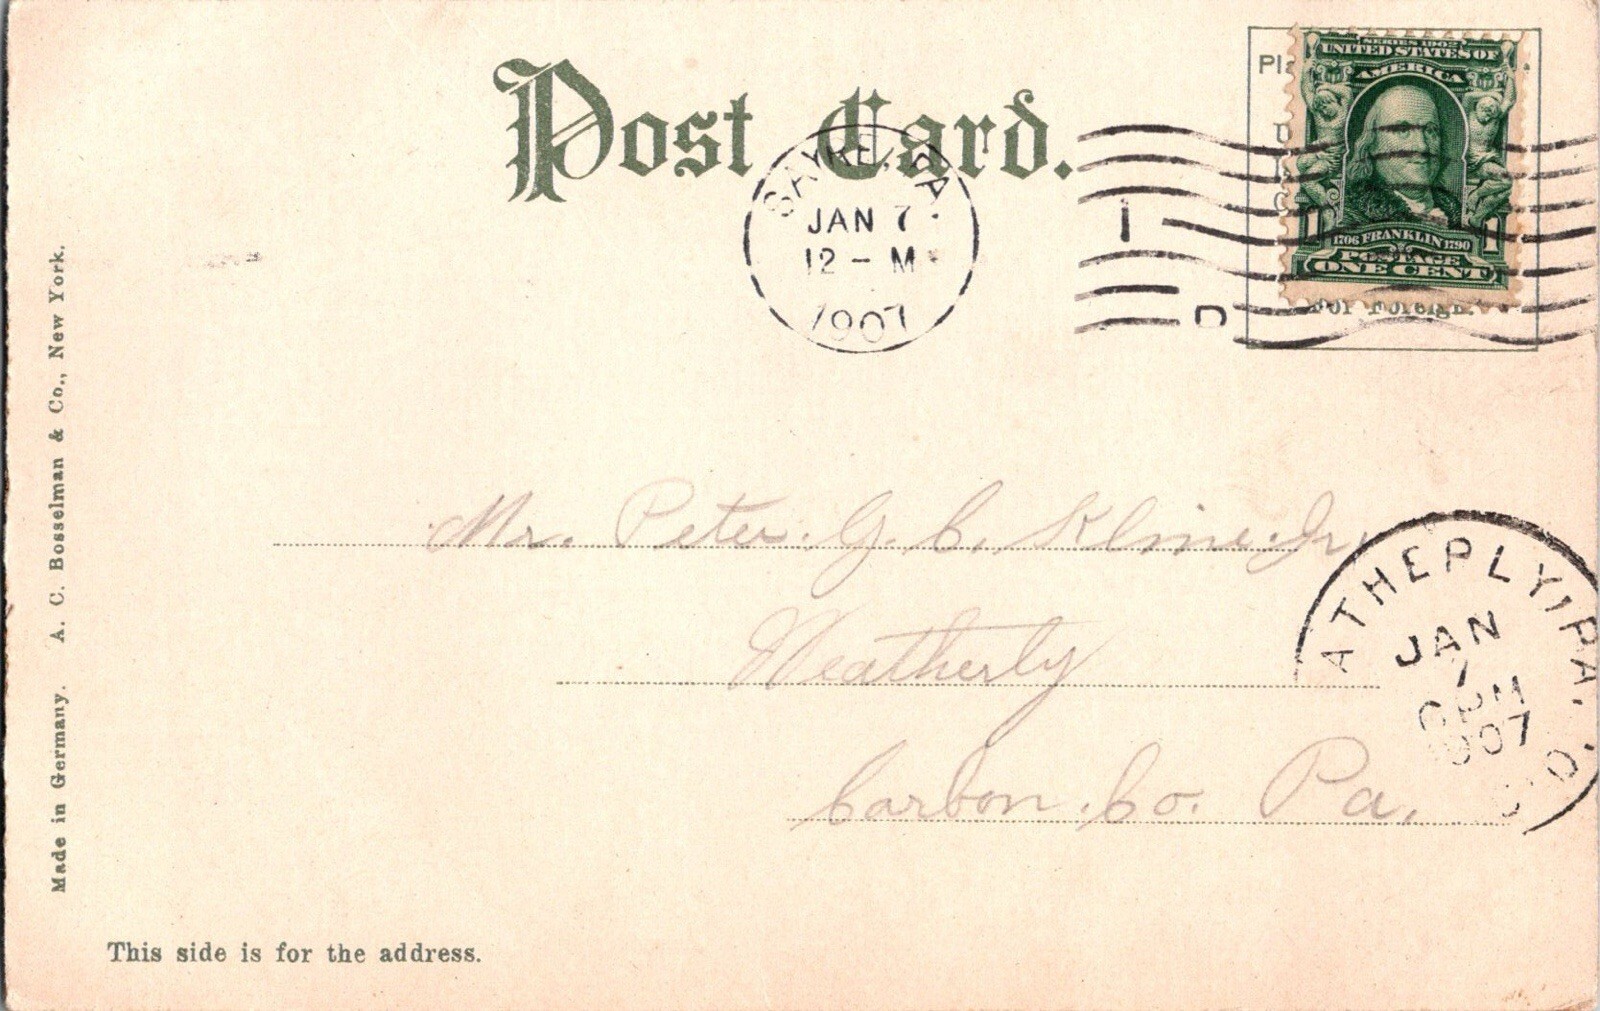 Post Card.
SAYRE, PA.
JAN 7
12 - M
1907
1
D
SERIES 1902
UNITED STATES OF
AMERICA
1706 FRANKLIN 1790
POSTAGE
ONE CENT
1 1
For Foreign
Mr. Peter G. C. Kline Jr.
Weatherly
Carbon Co. Pa.
ATHERLY, PA.
JAN
7
6 PM
1907
Made in Germany. A. C. Bosselman & Co., New York.
This side is for the address.